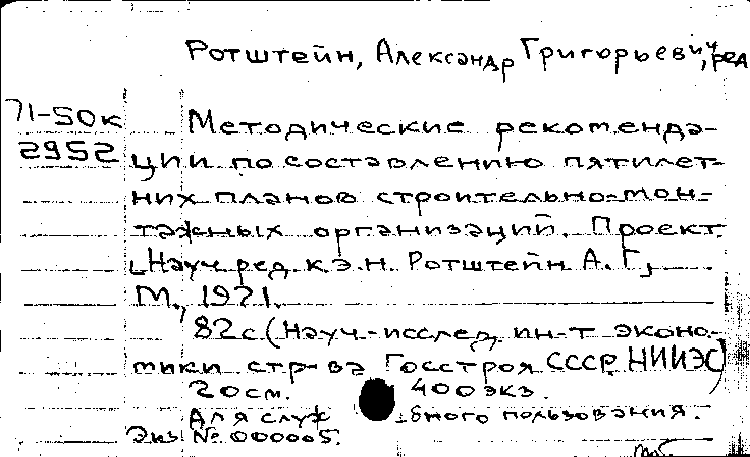 Ротштейн, Александр Григорьевич, ред
71-50к Методические рекоменда-
2952 ции по составлению пятилет-
них планов строительно-мон-
тажных организаций. Проект.
[Науч. ред. к.э.н. Ротштейн А. Г.,
М., 1971.
82с (Науч.-исслед. ин-т эконо-
мики стр-ва Госстроя СССР. НИИЭС)
20см. 400экз.
Для служ бного пользования.
Экз. № 000005.